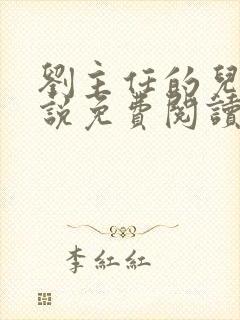 劉主任的兒
說免費閱讀
李紅紅